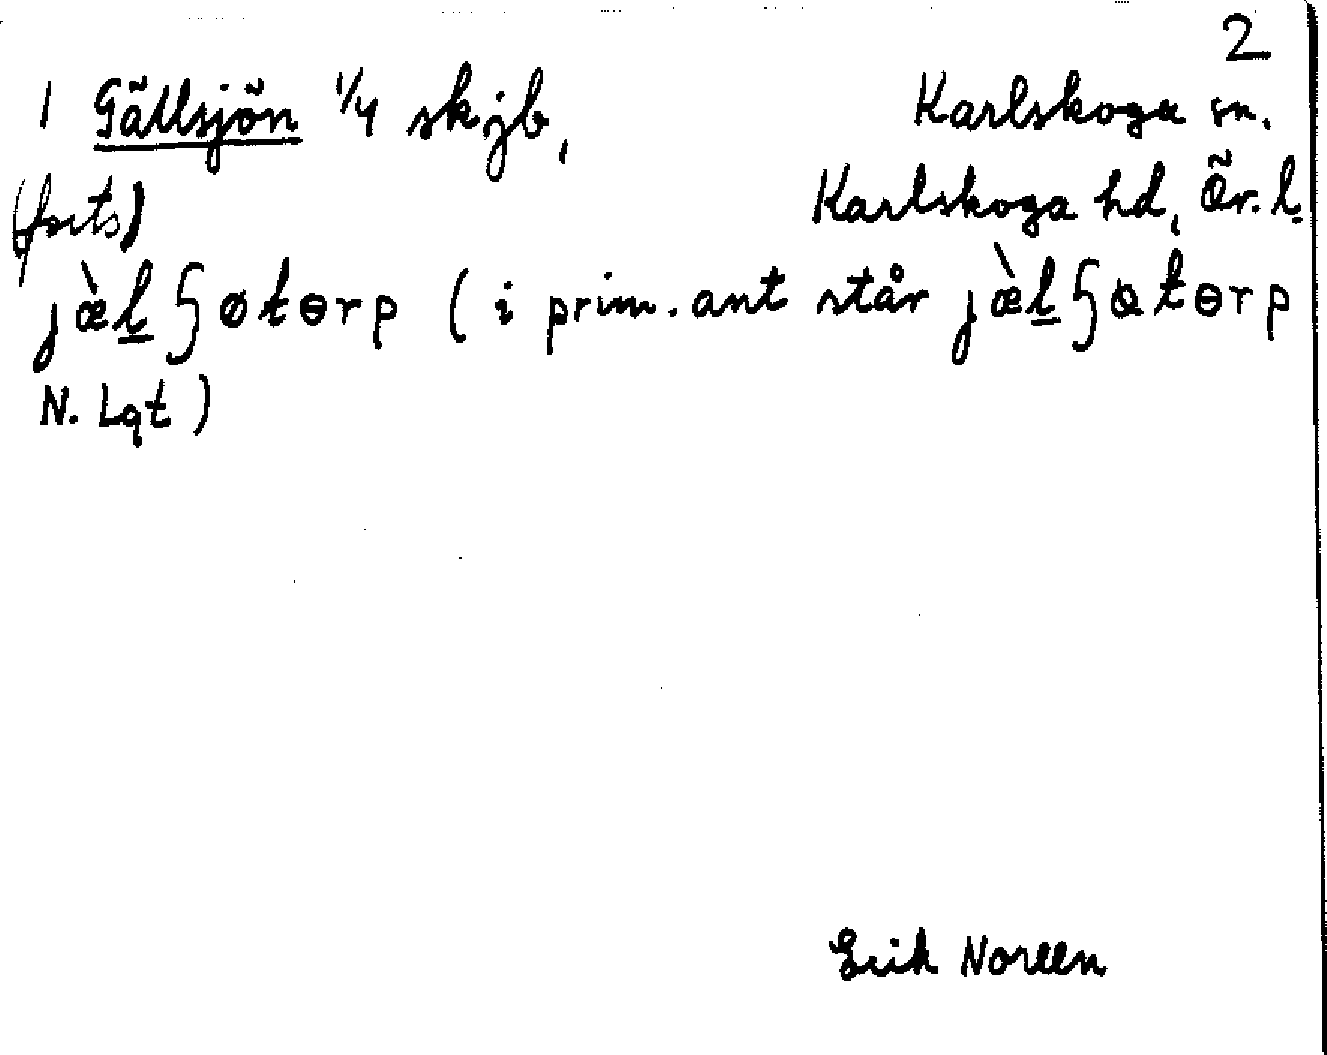 2
1 Gällsjön 1/4 skjb, Karlskoga sn.
(forts) Karlskoga hd, Ör. l.
jæ̀l̲ʃøtɵrp (i prim. ant står jæ̀l̲ʃꝋtɵrp
N. Lqt)
Erik Noreen